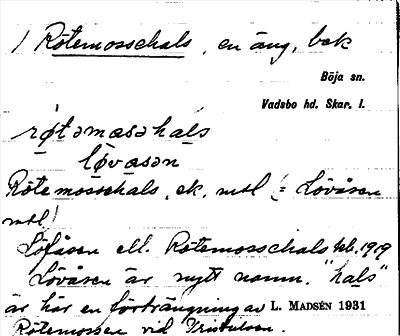 1 Rötemossehals, en äng, bek
Böja sn.
Vadsbo hd. Skar. l.
røtəmosəhals
løvåsən
Rötemossehals, ek. mtl (= Lövåsen
mtl)
Löfåsen ell. Rötemossehals 1919
Lövåsen är nytt namn. "hals"
är här en förträngning av L. MADSÉN 1931
Rötemossen vid